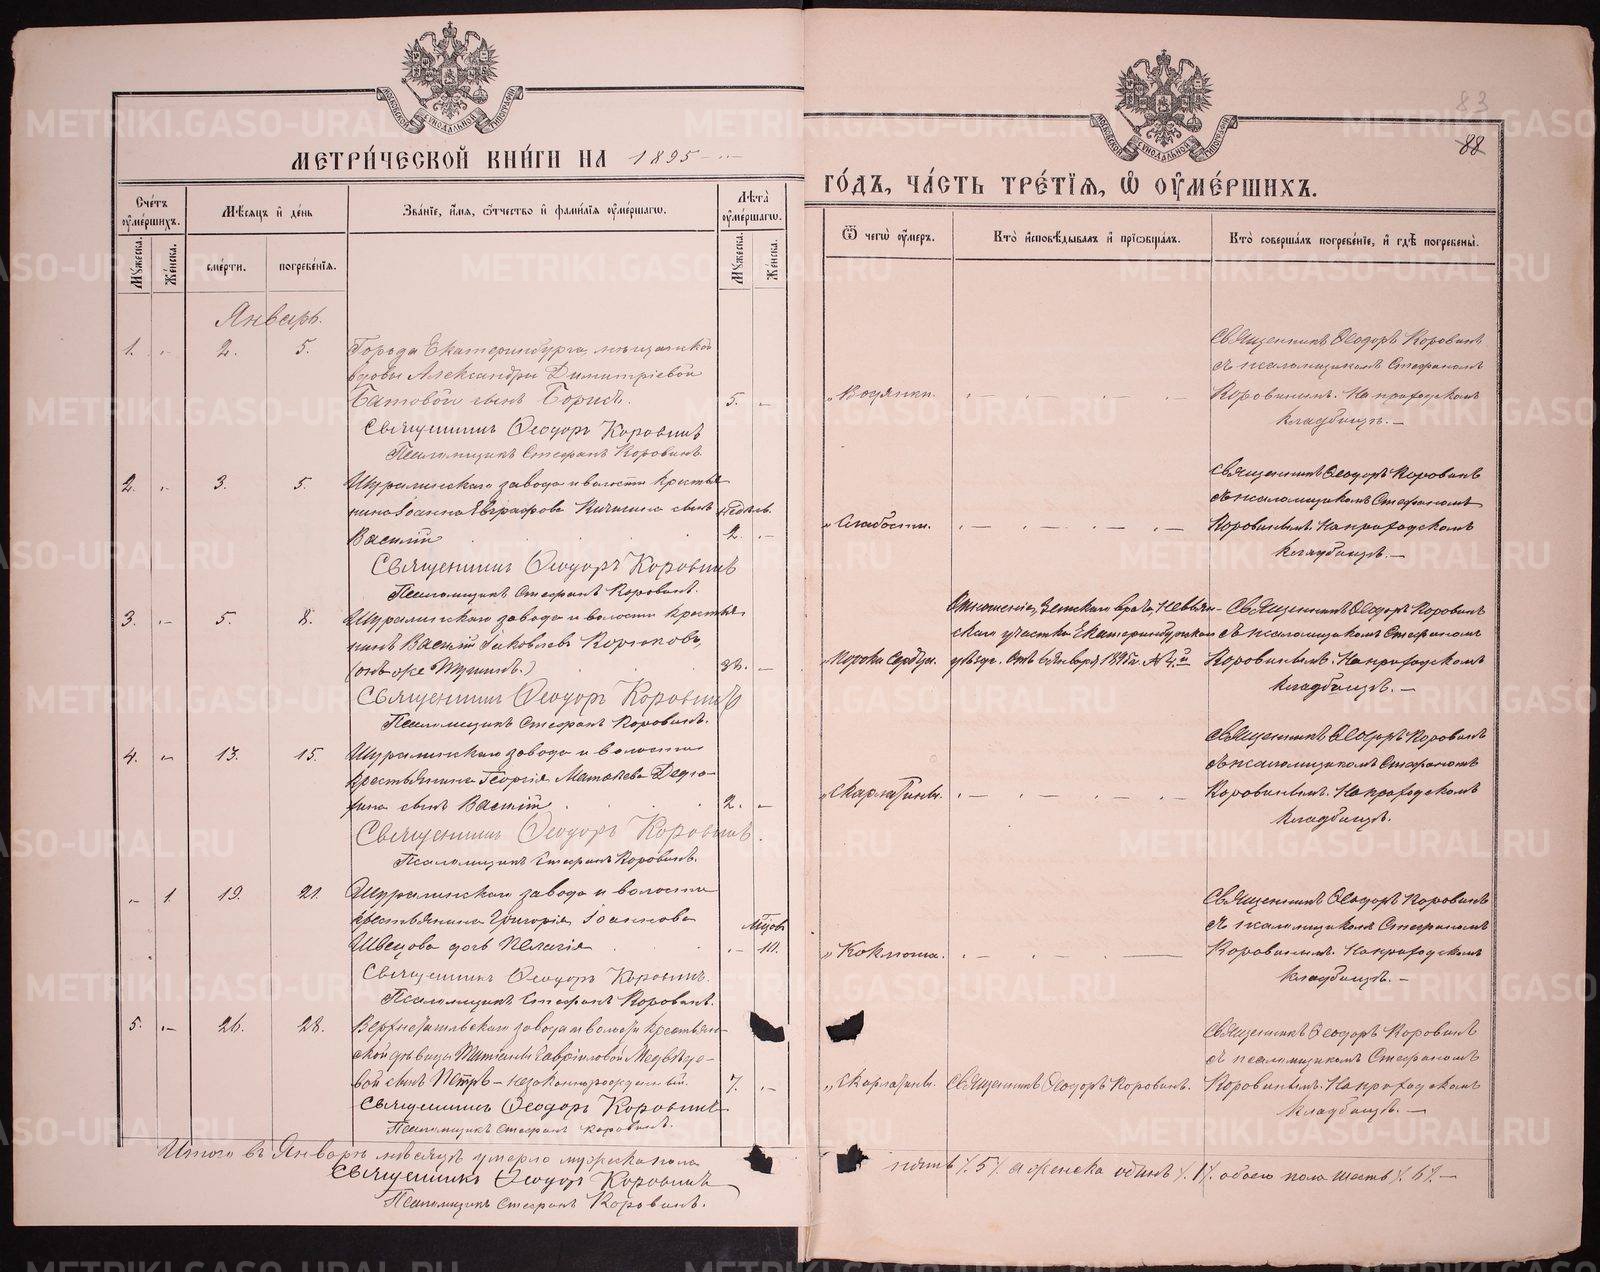 МЕТРИ́ЧЕСКОЙ КНИ́ГИ НА 1895
ГО́ДЪ, ЧА́СТЬ ТРЕ́ТІЯ, Ѡ҆ ОУ҆МЕ́РШИХЪ.
83
88
Сче́тъ оу҆ме́ршихъ.
Мѣ́сяцъ и҆ де́нь
Зва́нїе, и҆́мя, ѻ҆́тчество и҆ фамилїя оу҆ме́ршагѡ.
Лѣта̀ оу҆ме́ршагѡ.
Му́жеска.
Же́нска.
сме́рти.
погребе́нїя.
Му́жеска.
Же́нска.
Ѿ чегѡ̀ оу҆́меръ.
Кто̀ и҆сповѣ́дывалъ и҆ прїѡбща́лъ.
Кто̀ соверша́лъ погребе́нїе, и҆ гдѣ̀ погребены̀.
Январь.
1. „ 2. 5. Города Екатеринбурга, мѣщанской
вдовы Александры Димитріевой
Батовой сынъ Борисъ. 5. „
Священникъ Ѳеодоръ Коровинъ
Псаломщикъ Стефанъ Коровинъ
„Водянки.
Священникъ Ѳеодоръ Коровинъ
съ псаломщикомъ Стефаномъ
Коровинымъ. На приходскомъ
кладбищѣ.—
2. „ 3. 5. Шуралинскаго завода и волости крестья-
нина Іоанна Евграфова Кичигина сынъ недѣль
Василій 2. „
Священникъ Ѳеодоръ Коровинъ
Псаломщикъ Стефанъ Коровинъ.
„Слабости.
Священникъ Ѳеодоръ Коровинъ
съ псаломщикомъ Стефаномъ
Коровинымъ. На приходскомъ
кладбищѣ.—
3. „ 5. 8. Шуралинскаго завода и волости крестья-
нинъ Василій Іаковлевъ Корюковъ,
(онъ же ) 38. —
Священникъ Ѳеодоръ Коровинъ
Псаломщикъ Стефанъ Коровинъ.
„Порока сердца.
Отношеніе, Земскаго врача, Невьян-
скаго участка Екатеринбургскаго
уѣзда. Отъ 6 января 1895 г. № 4.й
Священникъ Ѳеодоръ Коровинъ
съ псаломщикомъ Стефаномъ
Коровинымъ. На приходскомъ
кладбищѣ.—
4. „ 13. 15. Шуралинскаго завода и волости
крестьянина Георгія Матвѣева Дедю-
хина сынъ Василій 2. „
Священникъ Ѳеодоръ Коровинъ.
Псаломщикъ Стефанъ Коровинъ.
„Скарлатины.
Священникъ Ѳеодоръ Коровинъ
съ псаломщикомъ Стефаномъ
Коровинымъ. На приходскомъ
кладбищѣ.
„ 1. 19. 21. Шуралинскаго завода и волости
крестьянина Григорія Іоаннова мѣсяц.
Швецова дочь Пелагія „ 10.
Священникъ Ѳеодоръ Коровинъ.
Псаломщикъ Стефанъ Коровинъ.
„Коклюша.
Священникъ Ѳеодоръ Коровинъ
съ псаломщикомъ Стефаномъ
Коровинымъ. На приходскомъ
кладбищѣ.—
5. „ 26. 28. Верхнетагильскаго завода и волости крестьян-
ской дѣвицы Татіаны Гавріиловой Медвѣде-
вой сынъ Петръ – незаконнорожденный. 7. „
Священникъ Ѳеодоръ Коровинъ
Псаломщикъ Стефанъ Коровинъ.
„Скарлатины.
Священникъ Ѳеодоръ Коровинъ.
Священникъ Ѳеодоръ Коровинъ
съ псаломщикомъ Стефаномъ
Коровинымъ. На приходскомъ
кладбищѣ.—
Итого въ Январѣ мѣсяцѣ умерло мужеска пола пять /.5/. а женска одинъ /.1/. обоего пола шесть /.6/.—
Священникъ Ѳеодоръ Коровинъ
Псаломщикъ Стефанъ Коровинъ.
METRIKI.GASO-URAL.RU